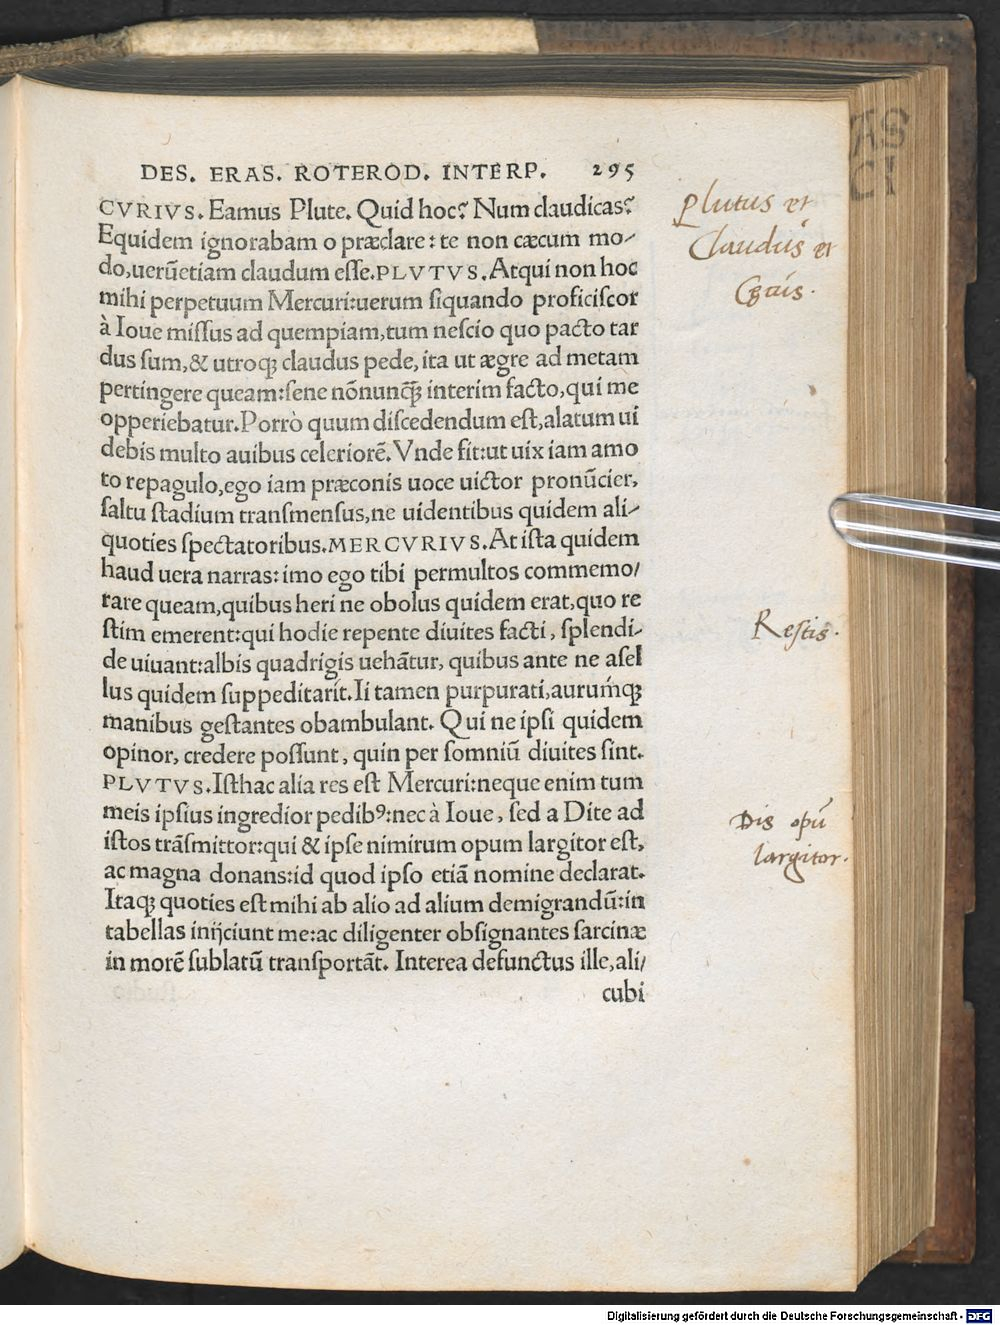 DES. ERAS. ROTEROD. INTERP. 295
CVRIVS. Eamus Plute. Quid hoc? Num claudicas?
Equidem ignorabam o præclare: te non cæcum mo-
do, uerūetiam claudum esse. PLVTVS. Atqui non hoc
mihi perpetuum Mercuri: uerum siquando proficiscor
à Ioue missus ad quempiam, tum nescio quo pacto tar
dus sum, & utroq; claudus pede, ita ut ægre ad metam
pertingere queam: sene nōnunq̃ interim facto, qui me
opperiebatur. Porrò quum discedendum est, alatum ui
debis multo auibus celeriorē. Vnde fit: ut uix iam amo
to repagulo, ego iam præconis uoce uictor pronūcier,
saltu stadium transmensus, ne uidentibus quidem ali-
quoties spectatoribus. MERCVRIVS. At ista quidem
haud uera narras: imo ego tibi permultos commemo/
rare queam, quibus heri ne obolus quidem erat, quo re
stim emerent: qui hodie repente diuites facti, splendi-
de uiuant: albis quadrigis uehātur, quibus ante ne asel
lus quidem suppeditarit. Ii tamen purpurati, aurumq;
manibus gestantes obambulant. Qui ne ipsi quidem
opinor, credere possunt, quin per somniū diuites sint.
PLVTVS. Isthac alia res est Mercuri: neque enim tum
meis ipsius ingredior pedibꝰ: nec à Ioue, sed a Dite ad
istos trāsmittor: qui & ipse nimirum opum largitor est,
ac magna donans: id quod ipso etiā nomine declarat.
Itaq; quoties est mihi ab alio ad alium demigrandū: in
tabellas inijciunt me: ac diligenter obsignantes sarcinæ
in morē sublatū transportāt. Interea defunctus ille, ali/
cubi
Plutus et
Claudus et
Restis.
Dis opū
largitor.
Digitalisierung gefördert durch die Deutsche Forschungsgemeinschaft - DFG